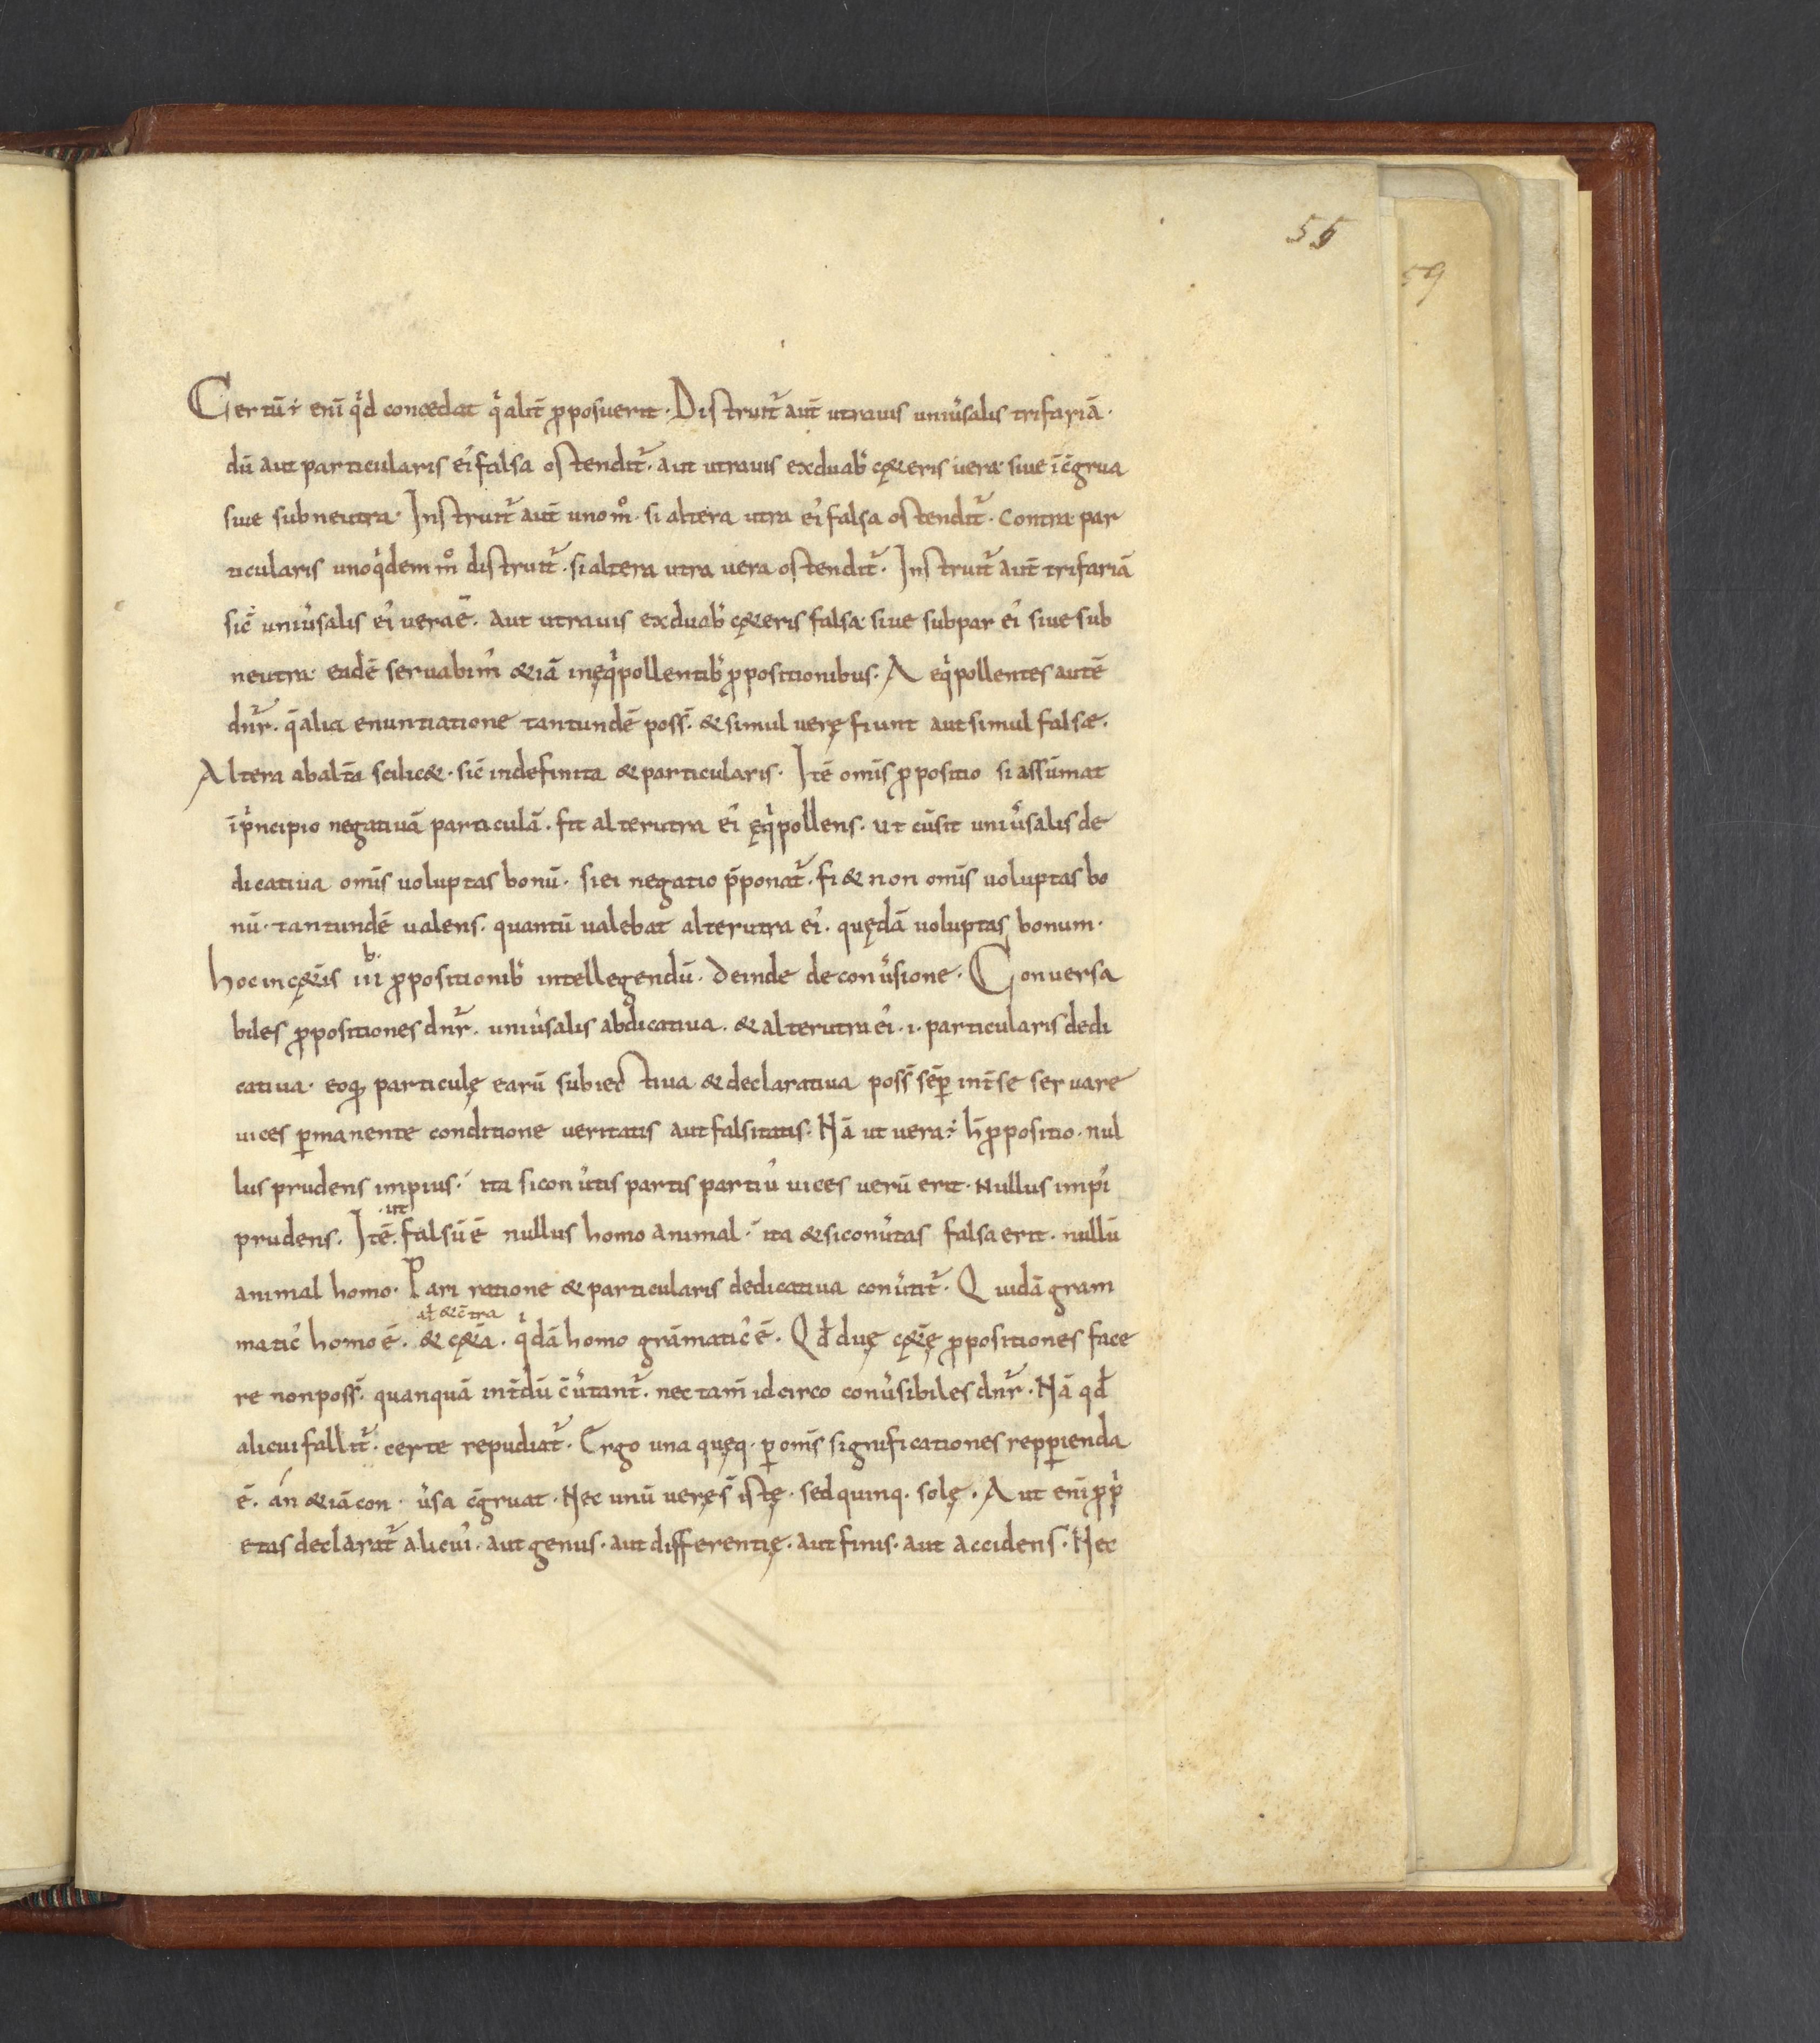 55
59
Certū ÷ eni̅ qͥd concedat qͥ alit̅ p̱posuerit. Distruit᷑ aut̅ utrauis uniu̓salis trifariā.
dū aut particularis ei̓ falsa ostendit᷑. aut utrauis exduab; cę&eris uera siue īc̄grua
siue subneutra. Instruit᷑ aut̅ uno m̊. si altera utra ei̓ falsa ostendit᷑. Contra par
ticularis uno qͥdem m̊ distruit᷑. si altera utra uera ostendit᷑. Instruit᷑ aut̅ trifariā
si c̄ uniu̓salis ei̓ uera ē. aut utrauis exduab; cę&eris falsa siue subpar ei̓ siue sub
neutra. eadē seruabim̓ &iā inęqͥpollentib; p̱positionibus. Aeqͥpollentes autē
dn̅r. q̄ alia enuntiatione tantundē poss̅. & simul uerę fiunt aut simul falsæ.
Altera abalt̅a scilic&. sic̄ indefinita & particularis. Itē omīs p̱positio si assūmat
īpͥncipio negatiuā particulā. fit alterutra ei̓ ęqͥpollens. Ut cūsit uniu̓salis de
dicatiua omīs uoluptas bonū. si ei negatio p̄ponat᷑. fi& non omīs uoluptas bo
nū. tantundē ualens. quantū ualebat alterutra ei̓. quędā uoluptas bonum.
b;
hoc incę&īs iii p̱positionib; intellegendū. Deinde de conu̓sione. Conuersa
biles p̱positiones dn̅r. uniu̓salis abdicatiua. & alterutra ei̓. i. particularis dedi
catiua. eoq; particulę earū subiectiua & declaratiua poss̅ sēp int̅ se seruare
uices p̱manente conditione ueritatis aut falsitatis. Nā ut uera ÷ h̄ p̱positio. nul
lus prudens impius. ita si conu̓tis partis partiu̓ uices uerū erit. Nullus impi̓
ut
prudens. Itē. falsū ē nullus homo animal. ita & si conu̓tas falsa erit. nullū
animal homo. Pari ratione & particularis dedicatiua conu̓tit᷑. Quidā gram
uł & c̄tra
matic̓ homo ē. & cę&a. qͥdā homo grāmatic̓ ē. Qđ duę cę&ę p̱positiones face
re non poss̅. quanquā int̅dū c̄u̓tant᷑. nec tam̄ idcirco conu̓sibiles dn̅r. Nā qđ
alicui fallit᷑. certe repudiat᷑. Ergo una quęq. p̱ omīs significationes repp̱ienda
ē. án &iā con. u̓sa c̄gruat. Nec unū uerę s̄ istę. sed quinq. solę. Aut eni̅ p̱pͥ
etas declarat᷑ alicui̓. aut genus. aut differentię. aut finis. aut accidens. Nec